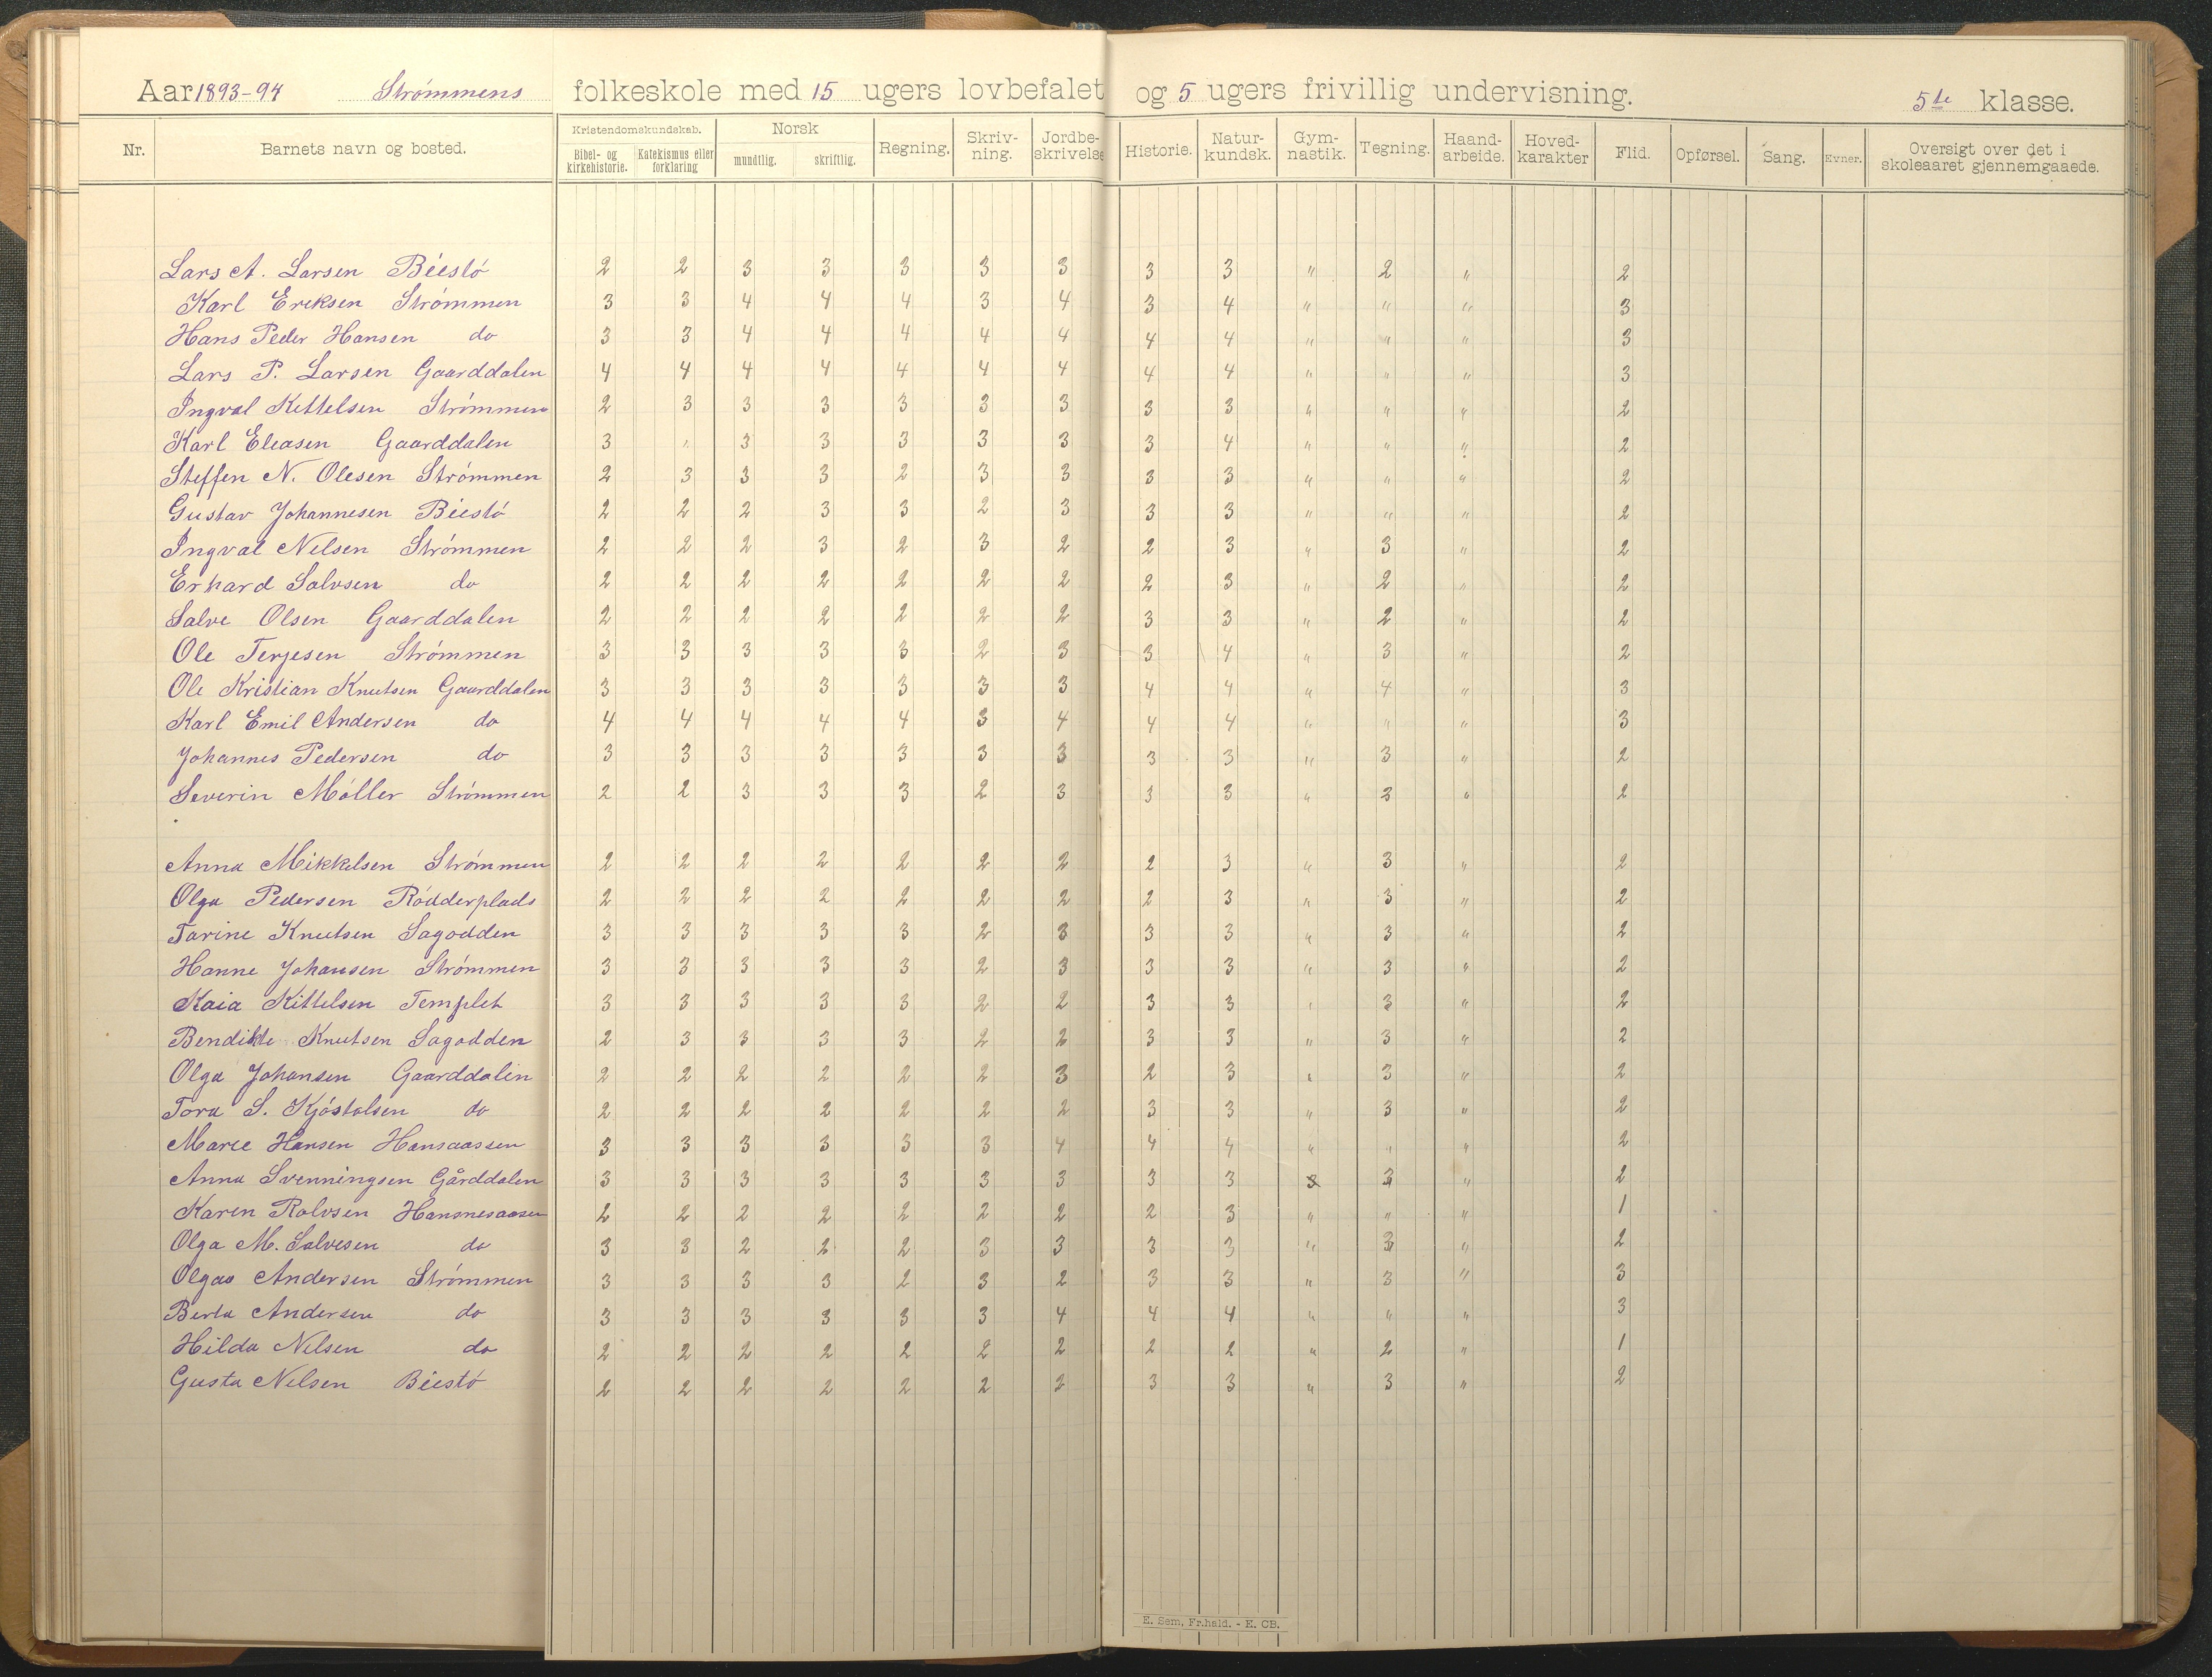 Aar 1893-94 Strømmens folkeskole med 15 ugers lovbefalet og 5 ugers frivillig undervisning. 5te klasse.
Nr. Barnets navn og bosted. Kristendomskundskab. Bibel- og kirkehistorie. Katekismus eller forklaring Norsk mundtlig. skriftlig. Regning. Skriv-ning. Jordbe-skrivelse Historie. Natur-kundsk. Gym-nastik. Tegning. Haand-arbeide. Hoved-karakter Flid. Opførsel. Sang. Evner. Oversigt over det i skoleaaret gjennemgaaede.
Lars A. Larsen Biestø 2 2 3 3 3 3 3 3 3 " 2 " 2
Karl Ereksen Strømmen 3 3 4 4 4 3 4 3 4 " " " 3
Hans Peder Hansen do 3 3 4 4 4 4 4 4 4 " " " 3
Lars P. Larsen Gaarddalen 4 4 4 4 4 4 4 4 4 " " " 3
Ingval Kettelsen Strømmen 2 3 3 3 3 3 3 3 3 " " " 2
Karl Eleasen Gaarddalen 3 " 3 3 3 3 3 3 4 " " " 2
Steffen N. Olesen Strømmen 2 3 3 3 2 3 3 3 3 " " " 2
Gustav Johannesen Biestø 2 2 2 3 3 2 3 3 3 " " " 2
Ingval Nelsen Strømmen 2 2 2 3 2 3 2 2 3 " 3 " 2
Erhard Salvsen do 2 2 2 2 2 2 2 2 3 " 2 " 2
Salve Olsen Gaarddalen 2 2 2 2 2 2 2 3 3 " 2 " 2
Ole Terjesen Strømmen 3 3 3 3 3 2 3 3 4 " 3 " 2
Ole Kristian Knutsen Gaarddalen 3 3 3 3 3 3 3 4 4 " 4 " 3
Karl Emil Andersen do 4 4 4 4 4 3 4 4 4 " " " 3
Johannes Pedersen do 3 3 3 3 3 3 3 3 3 " 3 " 2
Severin Møller Strømmen 2 2 3 3 3 2 3 3 3 " 3 " 2
Anna Mikkelsen Strømmen 2 2 2 2 2 2 2 2 3 " 3 " 2
Olga Pedersen Rødderplads 2 2 2 2 2 2 2 2 3 " 3 " 2
Tarine Knutsen Sagodden 3 3 3 3 3 2 3 3 3 " 3 " 2
Hanne Johansen Strømmen 3 3 3 3 3 2 3 3 3 " 3 " 2
Kaia Kittelsen Templet 3 3 3 3 3 2 2 3 3 " 3 " 2
Bendikte Knutsen Sagodden 2 3 3 3 3 2 2 3 3 " 3 " 2
Olga Johansen Gaarddalen 2 2 2 2 2 2 3 2 3 " 3 " 2
Tora S. Kjøstolsen do 2 2 2 2 2 2 2 3 3 " 3 " 2
Maree Hansen Hansaassen 3 3 3 3 3 3 4 4 4 " " " 2
Anna Svenningsen Gårddalen 3 3 3 3 3 3 3 3 3 3 " 2
Karen Rolvsen Hansnesaasen 2 2 2 2 2 2 2 2 3 " " " 1
Olga M. Salvesen do 3 3 2 2 2 3 3 3 3 " 3 " 2
Olgaa Andersen Strømmen 3 3 3 3 2 3 2 3 3 " 3 " 3
Berta Andersen do 3 3 3 3 3 3 4 4 4 " " " 3
Hilda Nelsen do 2 2 2 2 2 2 2 2 2 " 2 " 1
Gusta Nelsen Biestø 2 2 2 2 2 2 2 3 3 " 3 " 2
E. Sem, Fr.hald. - E. CB.